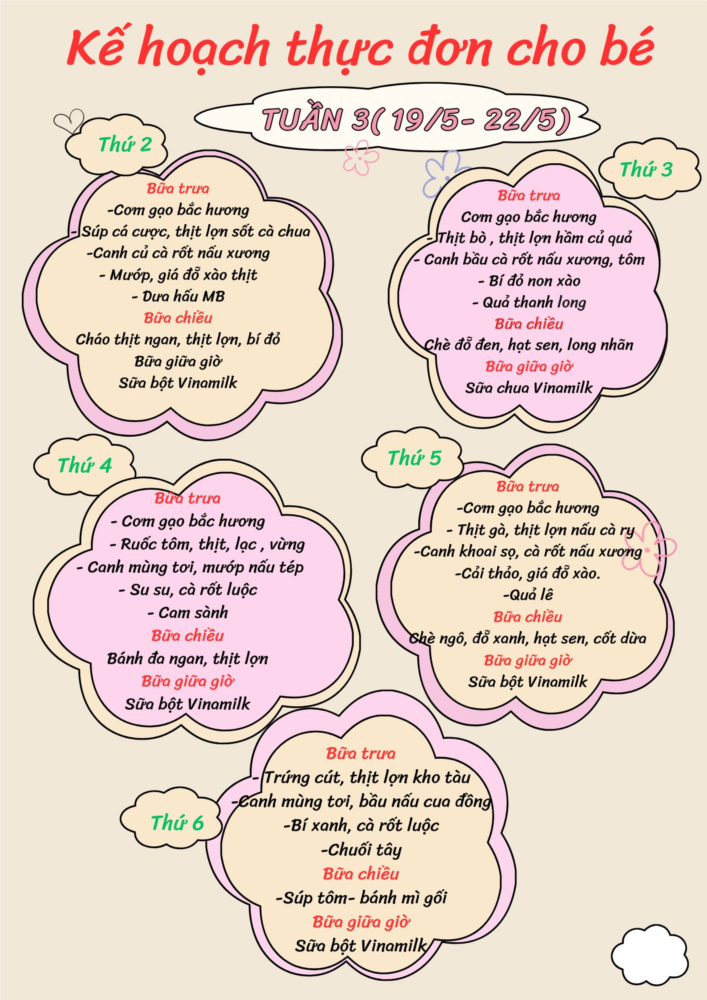 Kế hoạch thực đơn cho bé
TUẦN 3( 19/5- 22/5)
Thứ 2
Bữa trưa
-Cơm gạo bắc hương
- Súp cá cược, thịt lợn sốt cà chua
-Canh củ cà rốt nấu xương
- Mướp, giá đỗ xào thịt
- Dưa hấu MB
Bữa chiều
Cháo thịt ngan, thịt lợn, bí đỏ
Bữa giữa giờ
Sữa bột Vinamilk
Thứ 3
Bữa trưa
Cơm gạo bắc hương
- Thịt bò , thịt lợn hầm củ quả
- Canh bầu cà rốt nấu xương, tôm
- Bí đỏ non xào
- Quả thanh long
Bữa chiều
Chè đỗ đen, hạt sen, long nhãn
Bữa giữa giờ
Sữa chua Vinamilk
Thứ 4
Bữa trưa
- Cơm gạo bắc hương
- Ruốc tôm, thịt, lạc , vừng
- Canh mùng tơi, mướp nấu tép
- Su su, cà rốt luộc
- Cam sành
Bữa chiều
Bánh đa ngan, thịt lợn
Bữa giữa giờ
Sữa bột Vinamilk
Thứ 5
Bữa trưa
-Cơm gạo bắc hương
- Thịt gà, thịt lợn nấu cà ry
-Canh khoai sọ, cà rốt nấu xương
-Cải thảo, giá đỗ xào.
-Quả lê
Bữa chiều
Chè ngô, đỗ xanh, hạt sen, cốt dừa
Bữa giữa giờ
Sữa bột Vinamilk
Thứ 6
Bữa trưa
- Trứng cút, thịt lợn kho tàu
-Canh mùng tơi, bầu nấu cua đồng
-Bí xanh, cà rốt luộc
-Chuối tây
Bữa chiều
-Súp tôm- bánh mì gối
Bữa giữa giờ
Sữa bột Vinamilk